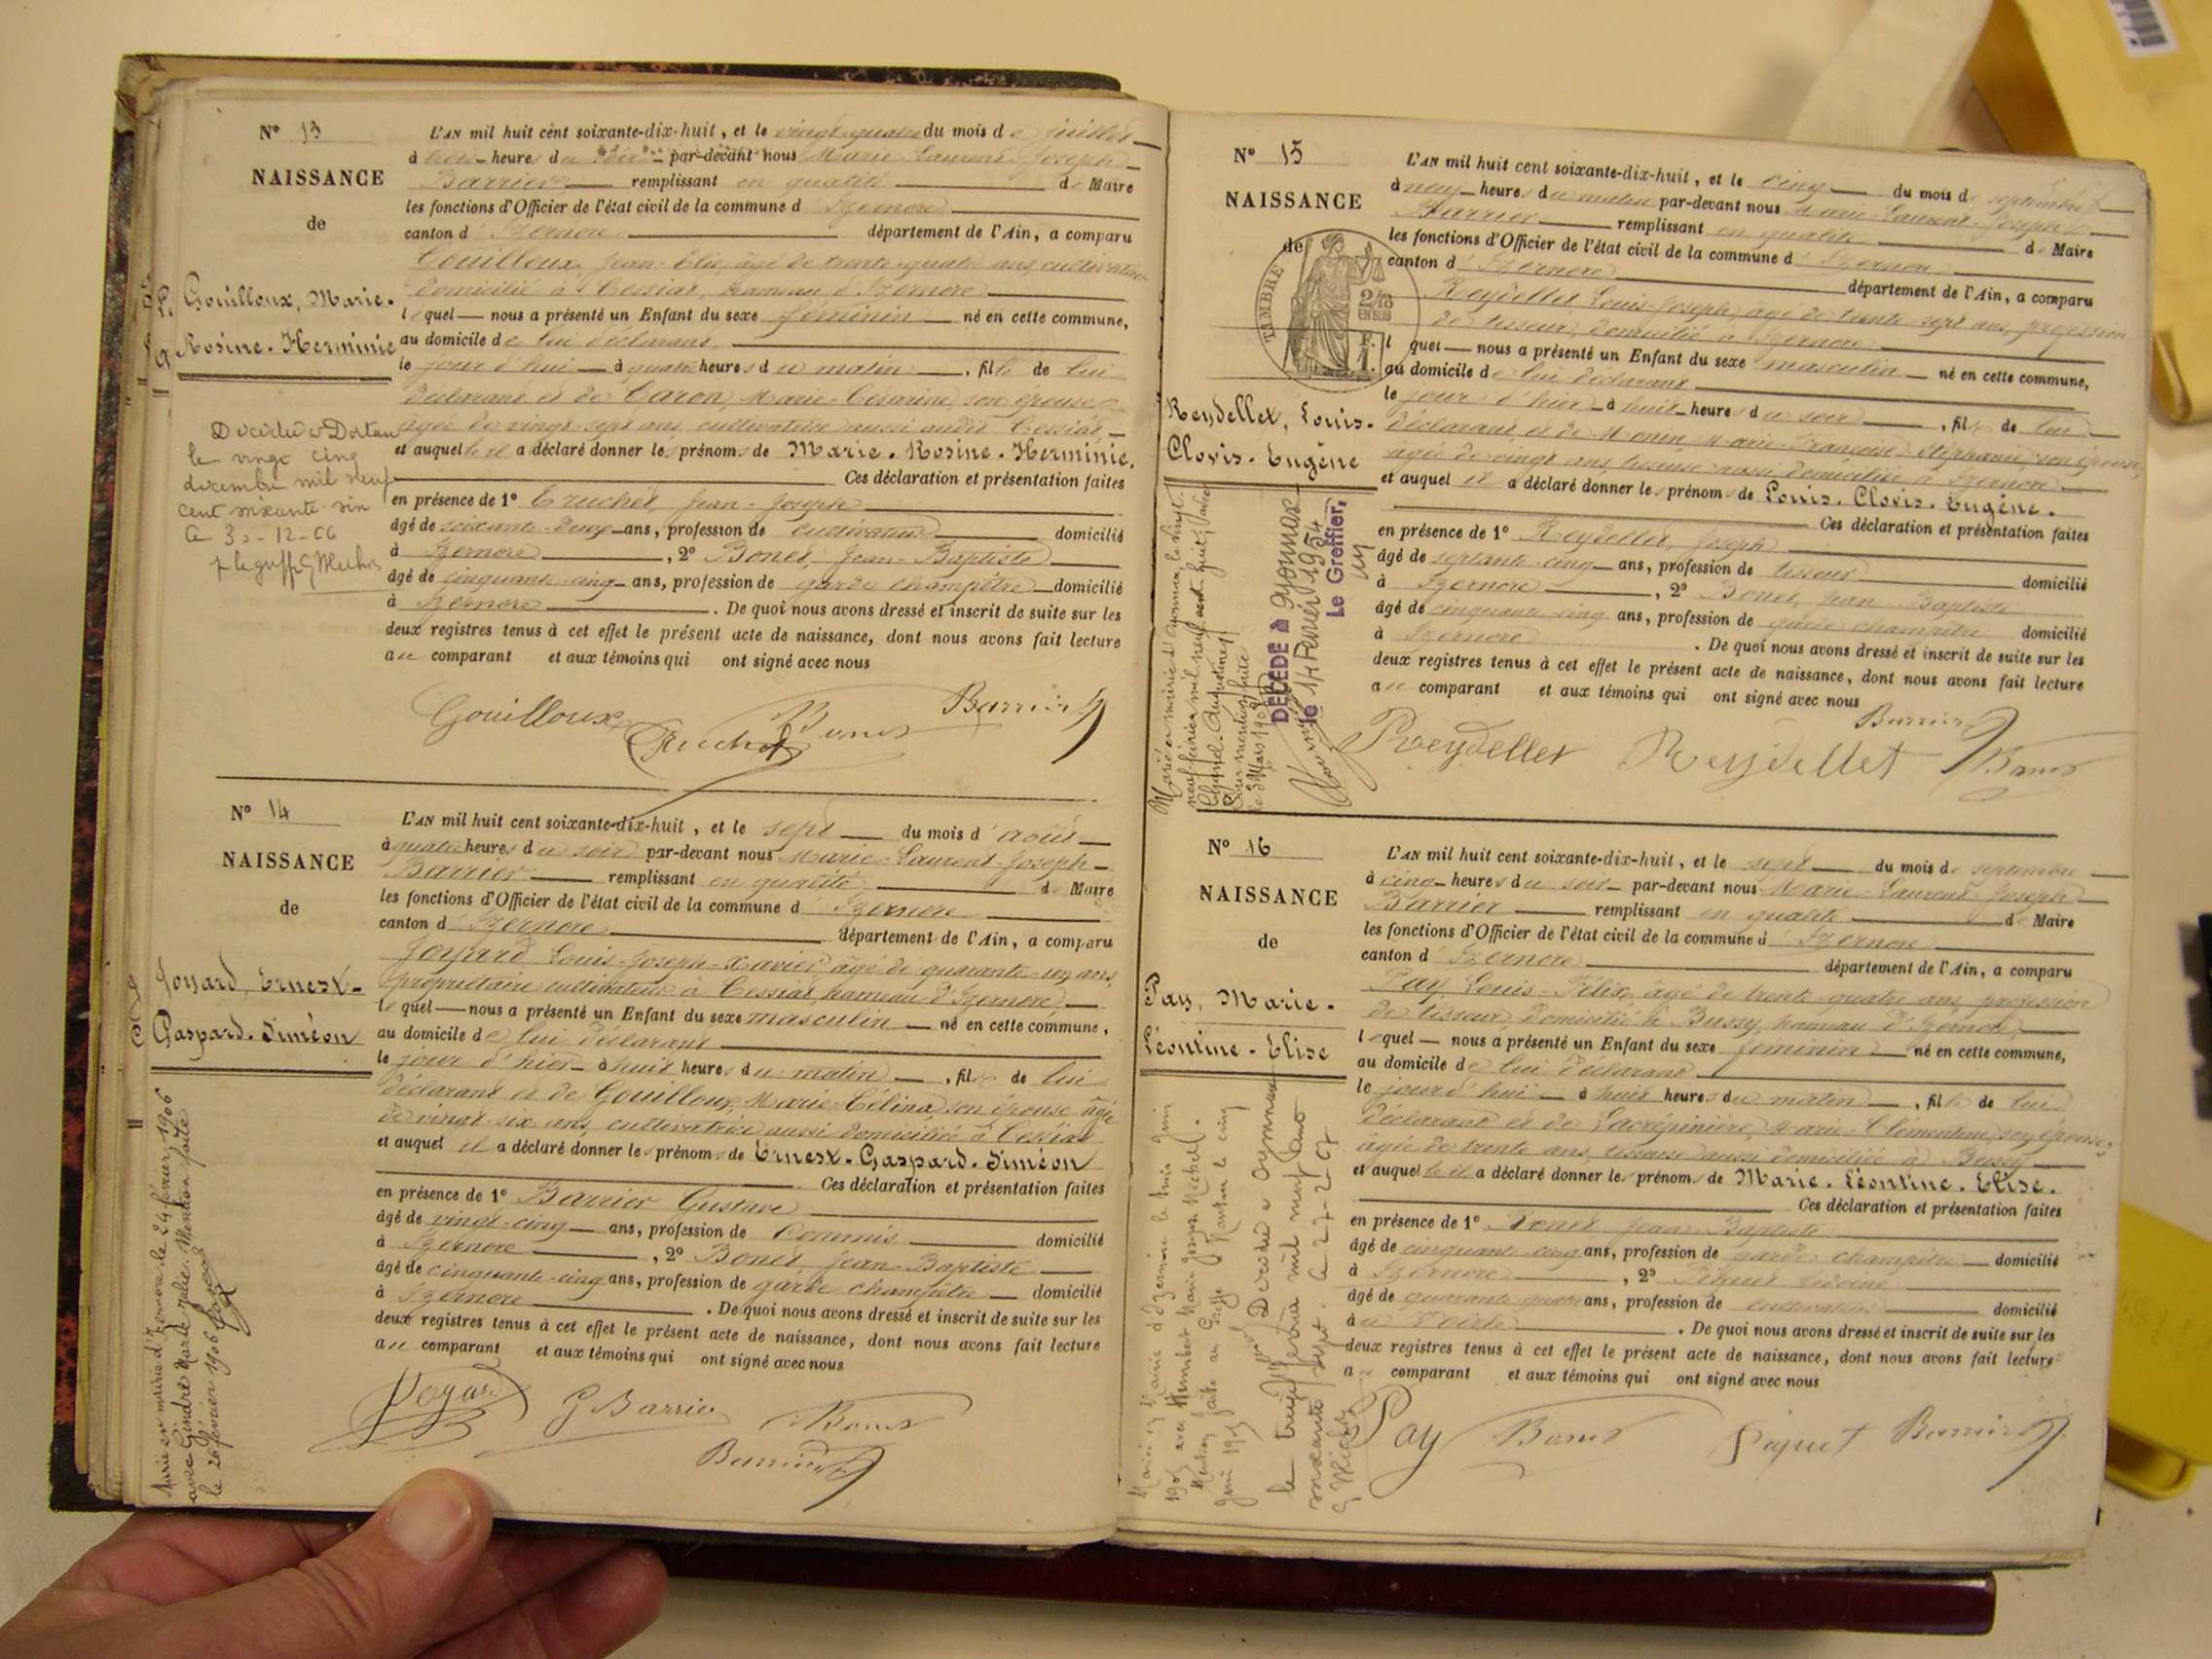 N° 13
NAISSANCE
de
Gouilloux, Marie-
Rosine-Herminie
Décédée à Dortan
le vingt cinq
décembre mil neuf
cent soixante six
Le 30-12-66
L'AN mil huit cent soixante-dix-huit, et le vingt-quatre du mois de juillet
à trois heures du soir par-devant nous Marie-Laurent-Joseph
Barrier remplissant en qualité de Maire
les fonctions d'Officier de l'état civil de la commune d'Izernore
canton d'Izernore département de l'Ain, a comparu
Gouilloux, Jean-Elie, âgé de trente-quatre ans, cultivateur
domicilié à Cessiat, hameau d'Izernore
lequel nous a présenté un Enfant du sexe féminin né en cette commune,
au domicile de lui déclarant,
le jour d'hui à quatre heures du matin, fille de lui
déclarant et de Caron, Marie-Césarine, son épouse,
âgée de vingt-sept ans, cultivatrice aussi audit Cessiat
et auquelle il a déclaré donner les prénoms de Marie-Rosine-Herminie.
Ces déclaration et présentation faites
en présence de 1° Truchet, Jean-Joseph
âgé de soixante-deux ans, profession de cultivateur domicilié
à Izernore, 2° Bonet, Jean-Baptiste
âgé de cinquante-cinq ans, profession de garde champêtre domicilié
à Izernore. De quoi nous avons dressé et inscrit de suite sur les
deux registres tenus à cet effet le présent acte de naissance, dont nous avons fait lecture
au comparant et aux témoins qui ont signé avec nous
Gouilloux Truchet Bonet Barrier
N° 14
NAISSANCE
de
Joyard, Ernest-
Gaspard-Siméon
Marié en mairie d'Izernore le 24 février 1906
avec Gindre Marie. Mention faite
le 26 février 1906
L'AN mil huit cent soixante-dix-huit, et le sept du mois d'août
à quatre heures du soir par-devant nous Marie-Laurent-Joseph
Barrier remplissant en qualité de Maire
les fonctions d'Officier de l'état civil de la commune d'Izernore
canton d'Izernore département de l'Ain, a comparu
Joyard, Louis-Joseph-Xavier, âgé de quarante-un ans,
propriétaire cultivateur à Cessiat hameau d'Izernore
lequel nous a présenté un Enfant du sexe masculin né en cette commune,
au domicile de lui déclarant
le jour d'hier à huit heures du matin, fils de lui
déclarant et de Gouilloux, Marie-Célina, son épouse âgée
de vingt-six ans, cultivatrice aussi domiciliée à Cessiat
et auquel il a déclaré donner les prénoms de Ernest-Gaspard-Siméon
Ces déclaration et présentation faites
en présence de 1° Barrier Gustave
âgé de vingt-cinq ans, profession de commis domicilié
à Izernore, 2° Bonet, Jean-Baptiste
âgé de cinquante-cinq ans, profession de garde champêtre domicilié
à Izernore. De quoi nous avons dressé et inscrit de suite sur les
deux registres tenus à cet effet le présent acte de naissance, dont nous avons fait lecture
au comparant et aux témoins qui ont signé avec nous
Joyard G Barrier Bonet
Barrier
N° 15
NAISSANCE
de
TIMBRE
2/10
EN SUS
F.
1.
Reydellet, Louis-
Clovis-Eugène
Marié en mairie d'Oyonnax le vingt-
neuf février mil neuf cent huit
le 3 Mars 1908
DÉCÉDÉ à Oyonnax
le 14 Février 1954
Le Greffier,
L'AN mil huit cent soixante-dix-huit, et le cinq du mois de septembre
à neuf heures du matin par-devant nous Marie-Laurent-Joseph
Barrier remplissant en qualité de Maire
les fonctions d'Officier de l'état civil de la commune d'Izernore
canton d'Izernore département de l'Ain, a comparu
Reydellet, Louis-Joseph, âgé de trente-sept ans, profession
de tisseur, domicilié à Izernore
lequel nous a présenté un Enfant du sexe masculin né en cette commune,
au domicile de lui déclarant
le jour d'hier à huit heures du soir, fils de lui
déclarant et de Monin, Marie-Françoise Stéphanie, son épouse,
âgée de vingt ans, tisseuse aussi domiciliée à Izernore
et auquel il a déclaré donner les prénoms de Louis-Clovis-Eugène.
Ces déclaration et présentation faites
en présence de 1° Reydellet, Joseph
âgé de septante-cinq ans, profession de tisseur domicilié
à Izernore, 2° Bonet, Jean Baptiste
âgé de cinquante cinq ans, profession de garde champêtre domicilié
à Izernore. De quoi nous avons dressé et inscrit de suite sur les
deux registres tenus à cet effet le présent acte de naissance, dont nous avons fait lecture
au comparant et aux témoins qui ont signé avec nous
Barrier
Reydellet Reydellet Bonet
N° 16
NAISSANCE
de
Pay, Marie-
Léontine-Elise
Mariée en Mairie d'Izernore le trois juin
1905 avec Humbert Marie Joseph Michel.
Mention faite au Greffe de Nantua le cinq
juin 1905
Décédée à Oyonnax
le treize février mil neuf cent
soixante sept. Le 27-2-67
L'AN mil huit cent soixante-dix-huit, et le sept du mois de septembre
à cinq heures du soir par-devant nous Marie-Laurent-Joseph
Barrier remplissant en qualité de Maire
les fonctions d'Officier de l'état civil de la commune d'Izernore
canton d'Izernore département de l'Ain, a comparu
Pay, Louis-Félix, âgé de trente-quatre ans, profession
de tisseur, domicilié à Bussy, hameau d'Izernore
lequel nous a présenté un Enfant du sexe féminin né en cette commune,
au domicile de lui déclarant
le jour d'hui à huit heures du matin, fille de lui
déclarant et de Lacrépinière, Marie-Clémentine, son épouse,
âgée de trente ans, tisseuse aussi domiciliée à Bussy
et auquelle il a déclaré donner les prénoms de Marie-Léontine-Elise.
Ces déclaration et présentation faites
en présence de 1° Bonet Jean-Baptiste
âgé de cinquante-cinq ans, profession de garde champêtre domicilié
à Izernore, 2° Piquet
âgé de quarante-quatre ans, profession de cultivateur domicilié
De quoi nous avons dressé et inscrit de suite sur les
deux registres tenus à cet effet le présent acte de naissance, dont nous avons fait lecture
au comparant et aux témoins qui ont signé avec nous
Pay Bonet Piquet Barrier